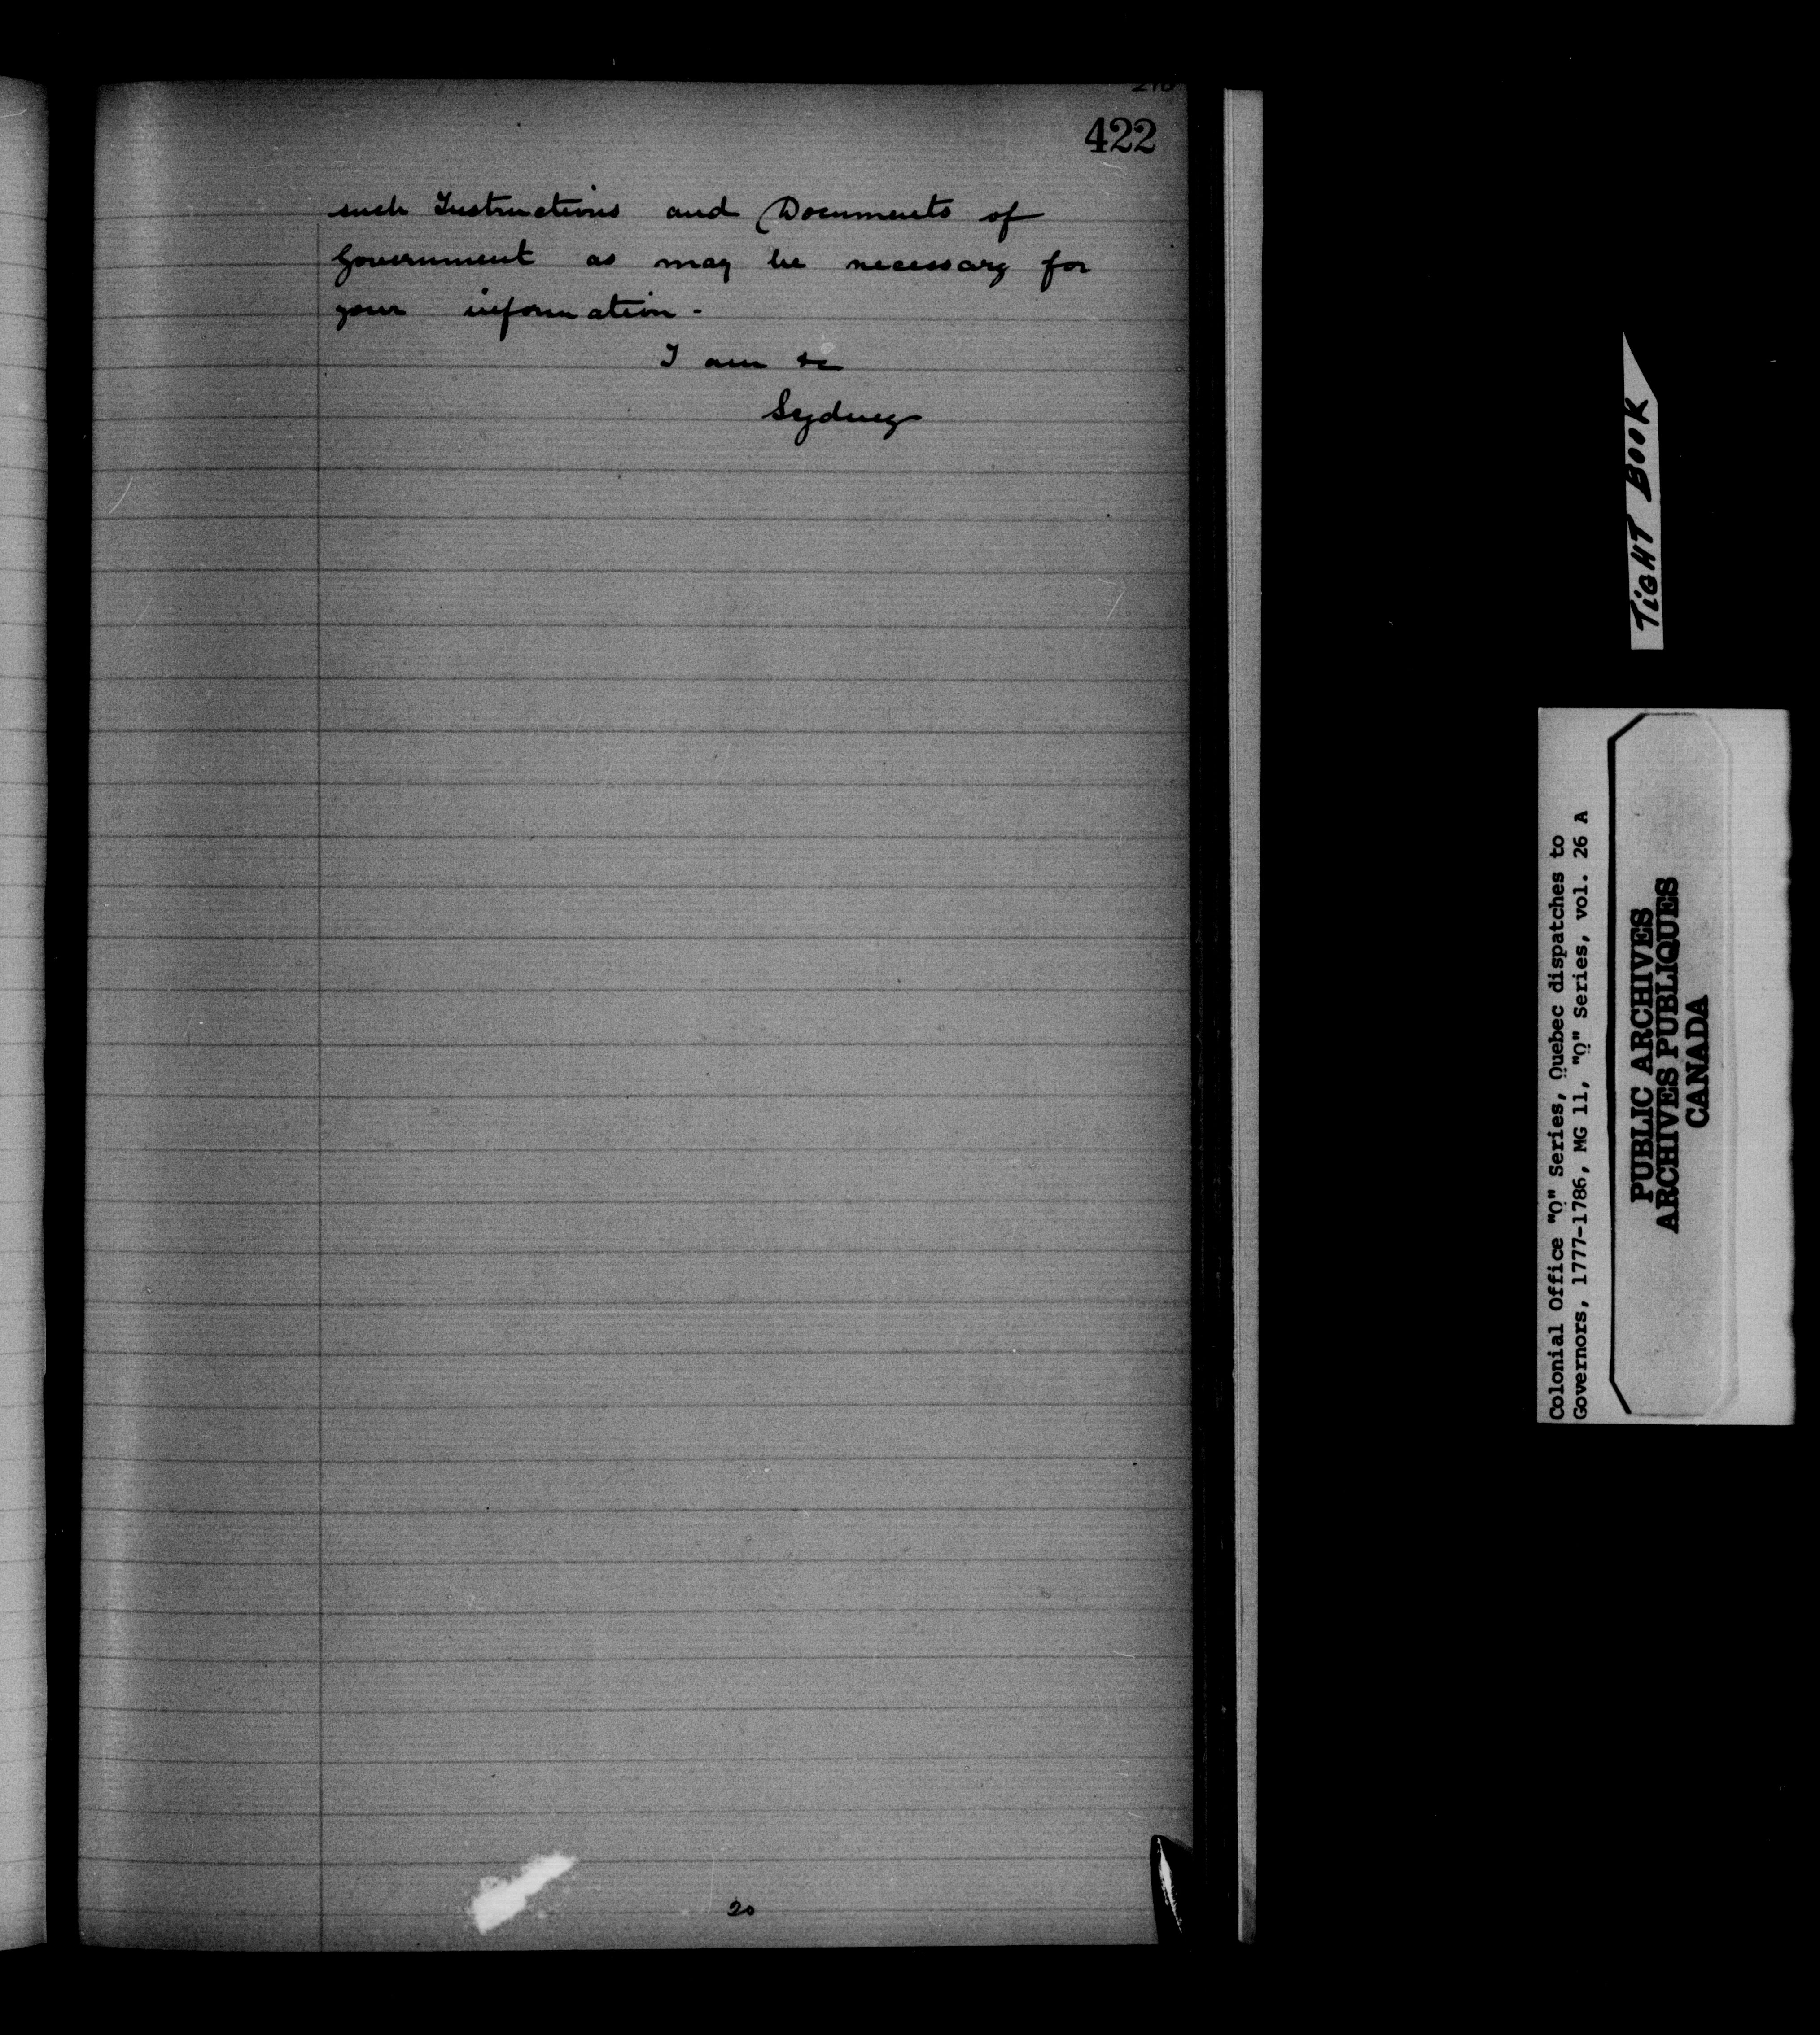 422
such Instructions and Documents of
Government as may be necessary for
your information -
I am &c
Sydney
20
TIGHT BOOK
Colonial Office "Q" Series, Quebec dispatches to
Governors, 1777-1786, MG 11, "Q" Series, vol. 26 A
PUBLIC ARCHIVES
ARCHIVES PUBLIQUES
CANADA